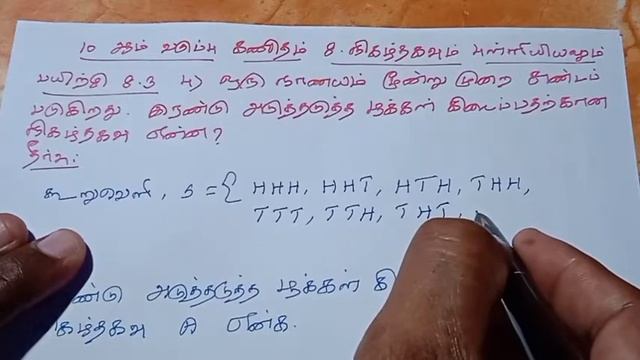 10 ஆம் வகுப்பு கணிதம் 8. நிகழ்தகவும் புள்ளியியலும்
பயிற்சி 8.3 4) ஒரு நாணயம் மூன்று முறை சுண்டப்
படுகிறது. இரண்டு அடுத்தடுத்த பூக்கள் கிடைப்பதற்கான
நிகழ்தகவு என்ன?
தீர்வு:
கூறுவெளி, S = { HHH, HHT, HTH, THH,
TTT, TTH, THT,
அடுத்தடுத்த பூக்கள்
A என்க.